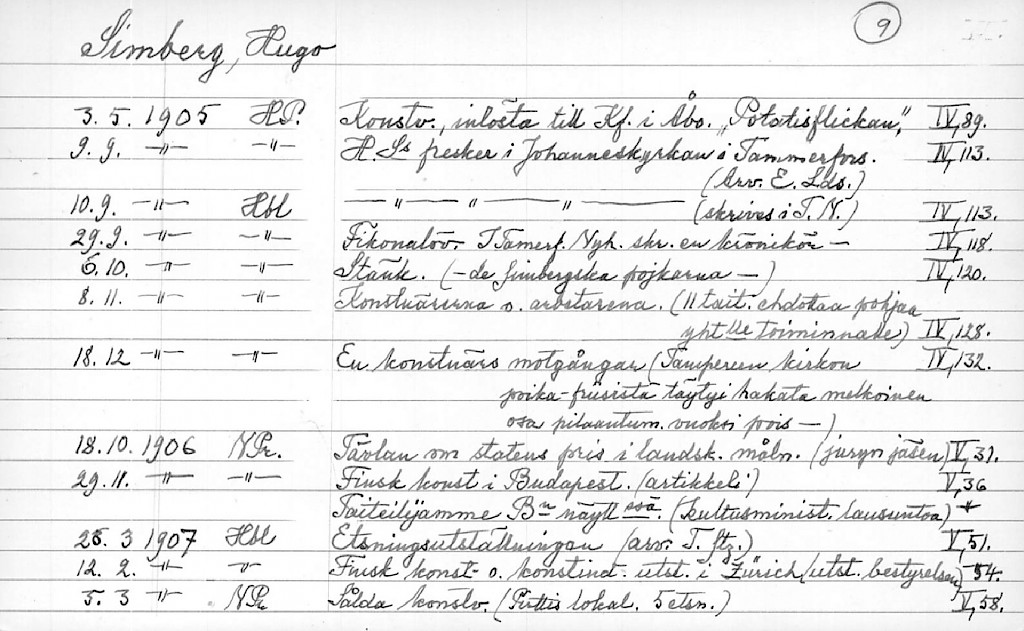 9
Simberg, Hugo
3.5. 1905 H.P. Konstv., inlösta till Kf. i Åbo. „Potatisflickan", IV, 89.
9.9. –"– –"– H. Ss fresker i Johanneskyrkan i Tammerfors. IV, 113.
(Arv. E. Lds.)
10.9. –"– Hbl –"–"–"– (skrives i T.N.) IV, 113.
29.9. –"– –"– Fikonalöv. I Tamerf. Nyh. skr. en krönikör – IV, 118.
6.10. –"– –"– Stänk. (–de Simbergska pojkarna –) IV, 120.
8.11. –"– –"– Konstnärerna o. arbetarena. (11 tait. ehdokaa pohjaa
yht lle toiminnalle) IV, 128.
18.12 –"– –"– En konstnärs motgångar (Tampereen kirkon IV, 132.
poika-friisistä täytyi hakata melkoinen
osa pilaantum. vuoksi pois –)
18.10. 1906 N.Pr. Tävlan om statens pris i landsk. måln. (juryn jäsen) V, 31.
29.11. –"– –"– Finsk konst i Budapest. (artikkeli) V, 36
Taiteilijamme Bn näytt ssä. (kultusminist. lausuntoa) –"–
25.3 1907 Hbl Etsningsutställningen (arv. T. ftz.) V, 51.
12.2. –"– –"– Finsk konst- o. konstind. utst. i Zürich (utst. bestyrelsen) –54.
5.3 –"– N.Pr. Sålda konstv. (Puttis lokal. 5 etsn.) V, 58.